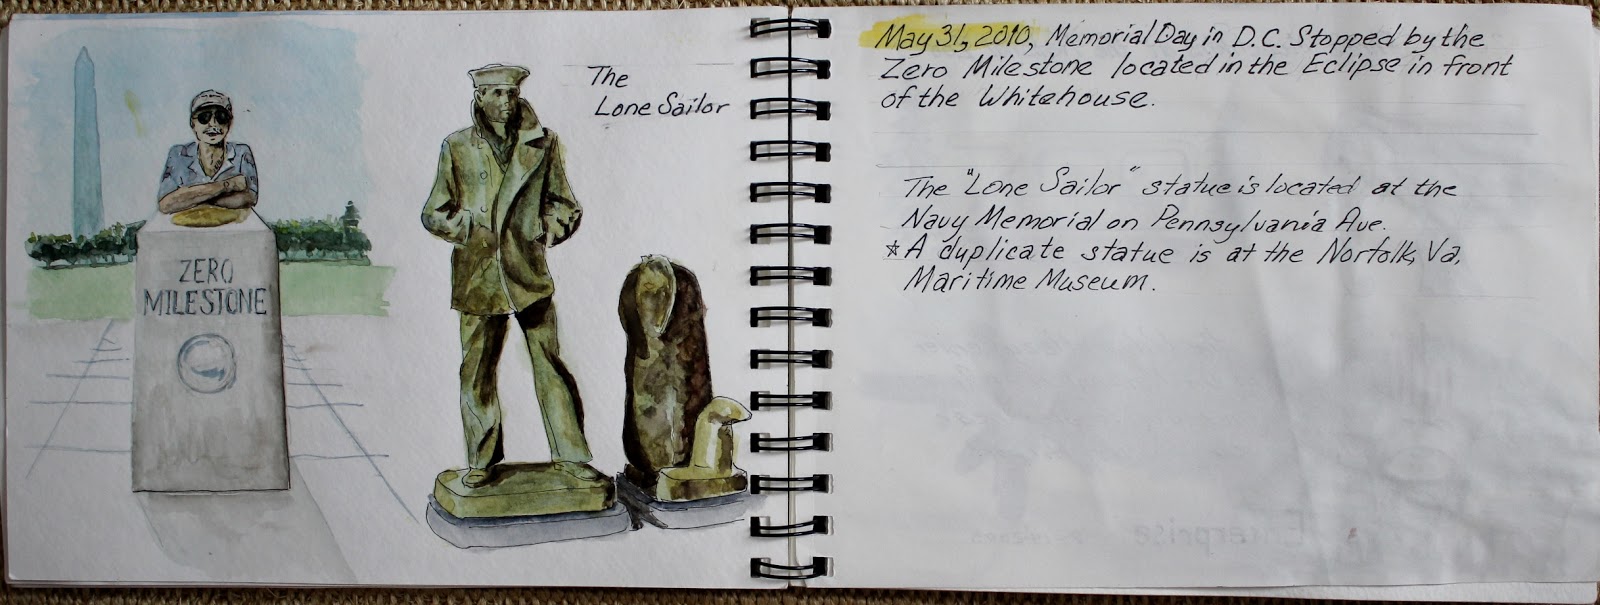 The
Lone Sailor
ZERO
MILESTONE
May 31, 2010, Memorial Day in D.C. Stopped by the
Zero Milestone located in the Eclipse in front
of the Whitehouse.
The "Lone Sailor" statue is located at the
Navy Memorial on Pennsylvania Ave.
☆ A duplicate statue is at the Norfolk, Va.
Maritime Museum.
Enterprise